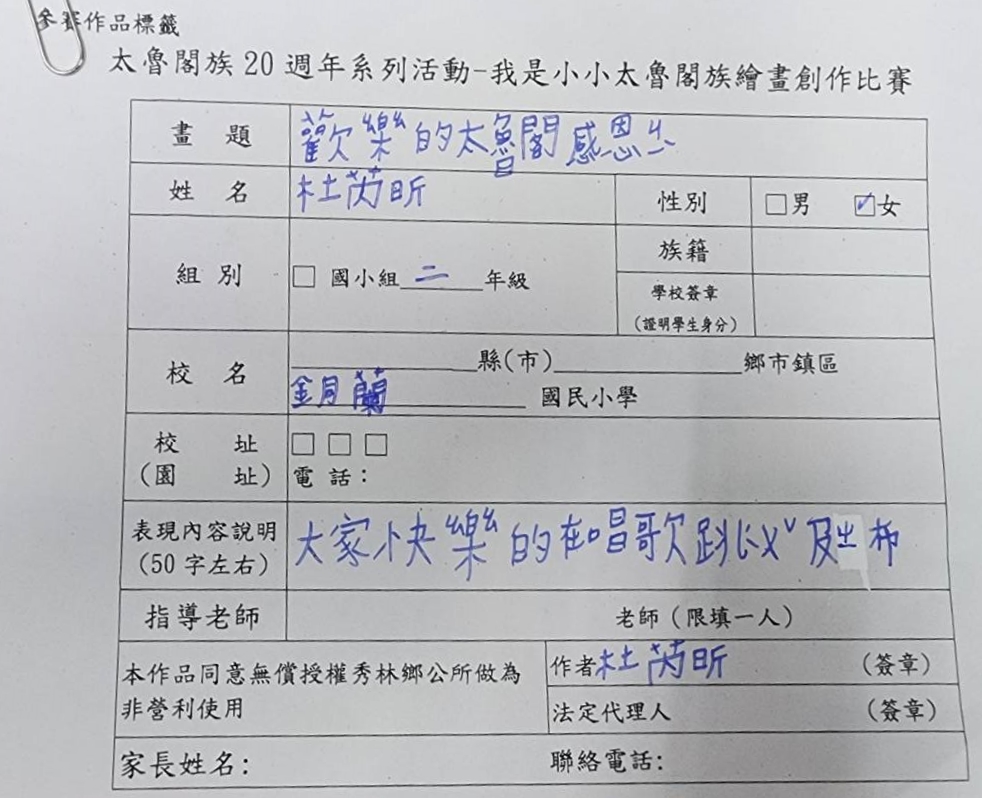 參賽作品標籤
太魯閣族20週年系列活動-我是小小太魯閣族繪畫創作比賽
畫題 歡樂的太魯閣感恩ㄐ
姓名 杜芮昕 性別 □男 ☑女
族籍
組別 □ 國小組 二 年級
學校簽章
(證明學生身分)
校名 縣(市) 鄉市鎮區
銅蘭 國民小學
校址 □□□
(園址) 電話：
表現內容說明 大家快樂的在唱歌跳ㄨˇ及
(50字左右)
指導老師 老師(限填一人)
本作品同意無償授權秀林鄉公所做為 作者杜芮昕 (簽章)
非營利使用 法定代理人 (簽章)
家長姓名： 聯絡電話：